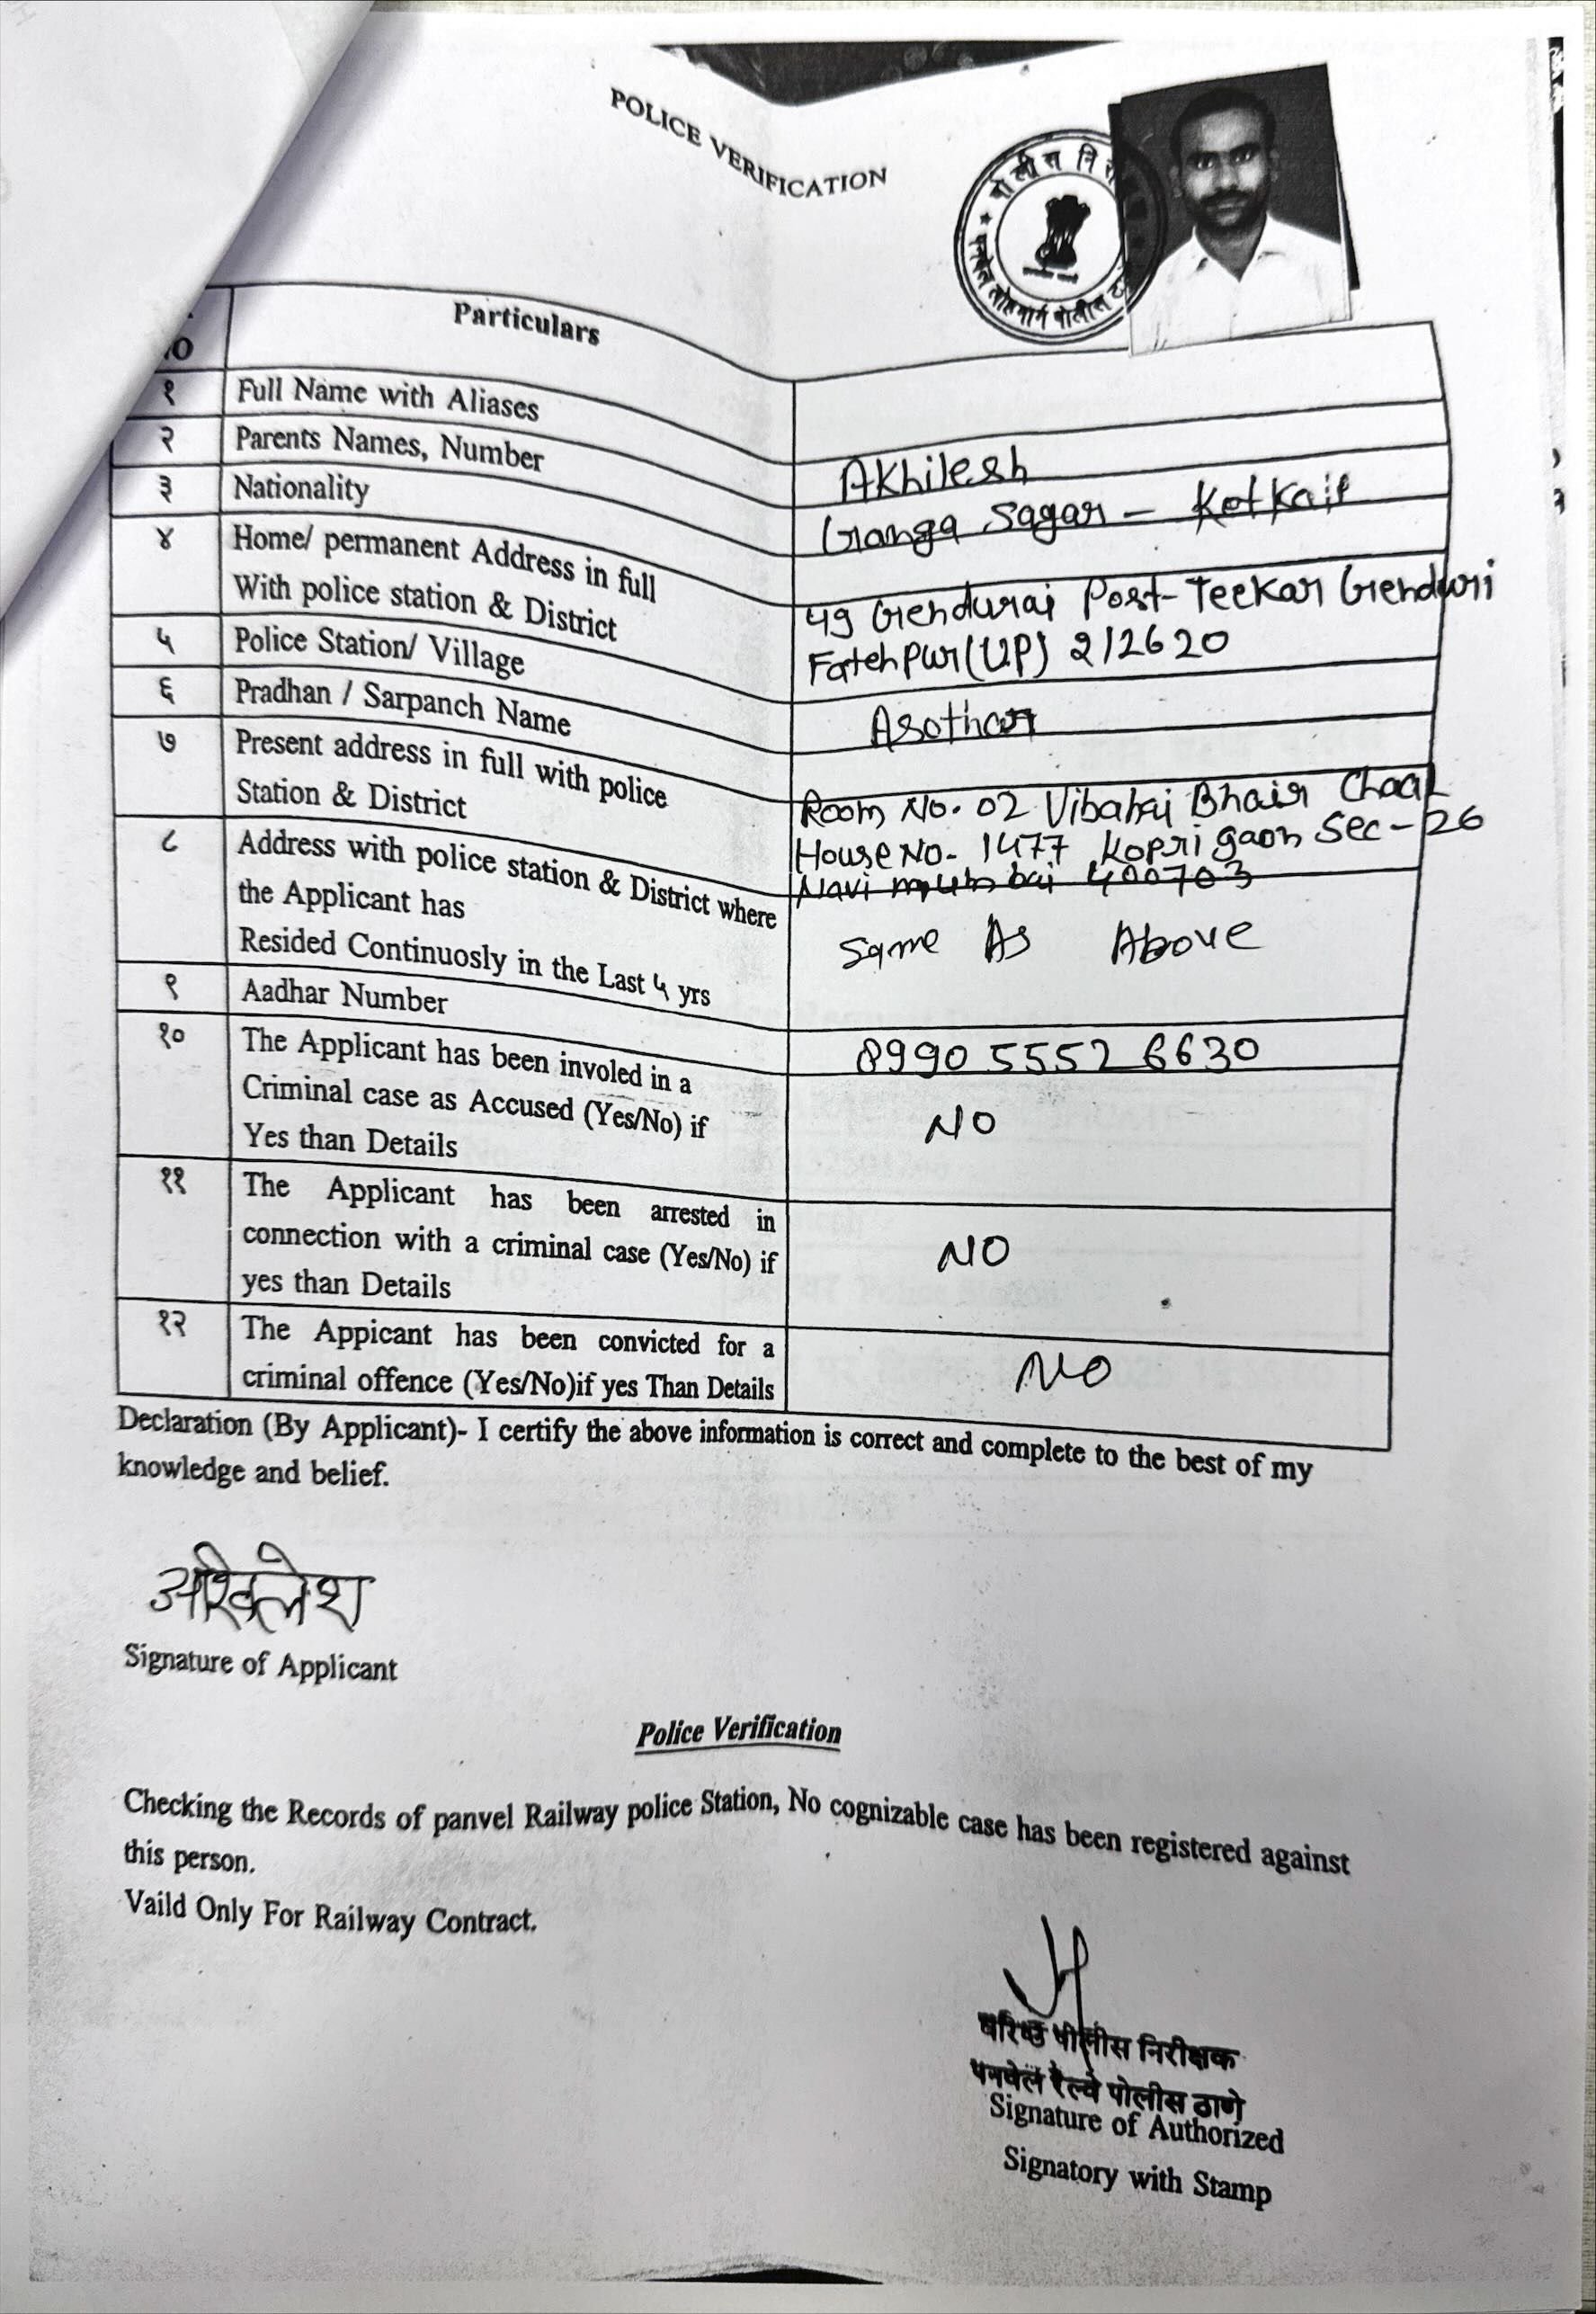 POLICE VERIFICATION
पोलीस नि
लोहमार्ग पोलीस
Particulars
१ Full Name with Aliases
Akhilesh
२ Parents Names, Number
Ganga Sagar -
३ Nationality
४ Home/ permanent Address in full
With police station & District
49 Gendurai Post-Teekar Genduri
Fatehpur(UP) 212620
५ Police Station/ Village
Asothar
६ Pradhan / Sarpanch Name
७ Present address in full with police
Station & District
Room No. 02 Vibabai Bhair Chaal
House No- 1477 Kopri gaon Sec-26
Navi mumbai 400703
८ Address with police station & District where
the Applicant has
Resided Continuosly in the Last ५ yrs
Same As Above
९ Aadhar Number
8990 5552 6630
१० The Applicant has been involed in a
Criminal case as Accused (Yes/No) if
Yes than Details
NO
११ The Applicant has been arrested in
connection with a criminal case (Yes/No) if
yes than Details
NO
१२ The Appicant has been convicted for a
criminal offence (Yes/No)if yes Than Details
NO
Declaration (By Applicant)- I certify the above information is correct and complete to the best of my
knowledge and belief.
अखिलेश
Signature of Applicant
Police Verification
Checking the Records of panvel Railway police Station, No cognizable case has been registered against
this person.
Vaild Only For Railway Contract.
वरिष्ठ पोलीस निरीक्षक
पनवेल रेल्वे पोलीस ठाणे
Signature of Authorized
Signatory with Stamp